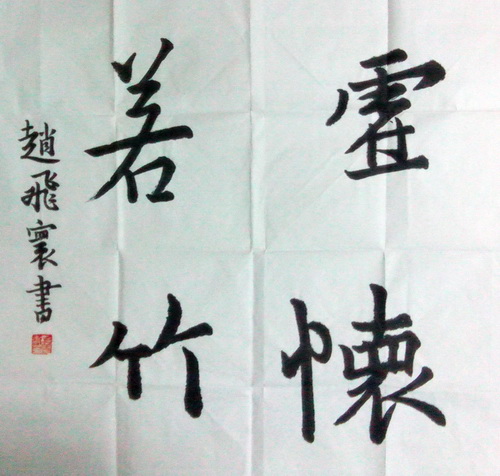 虛懷
若竹
趙飛寰書